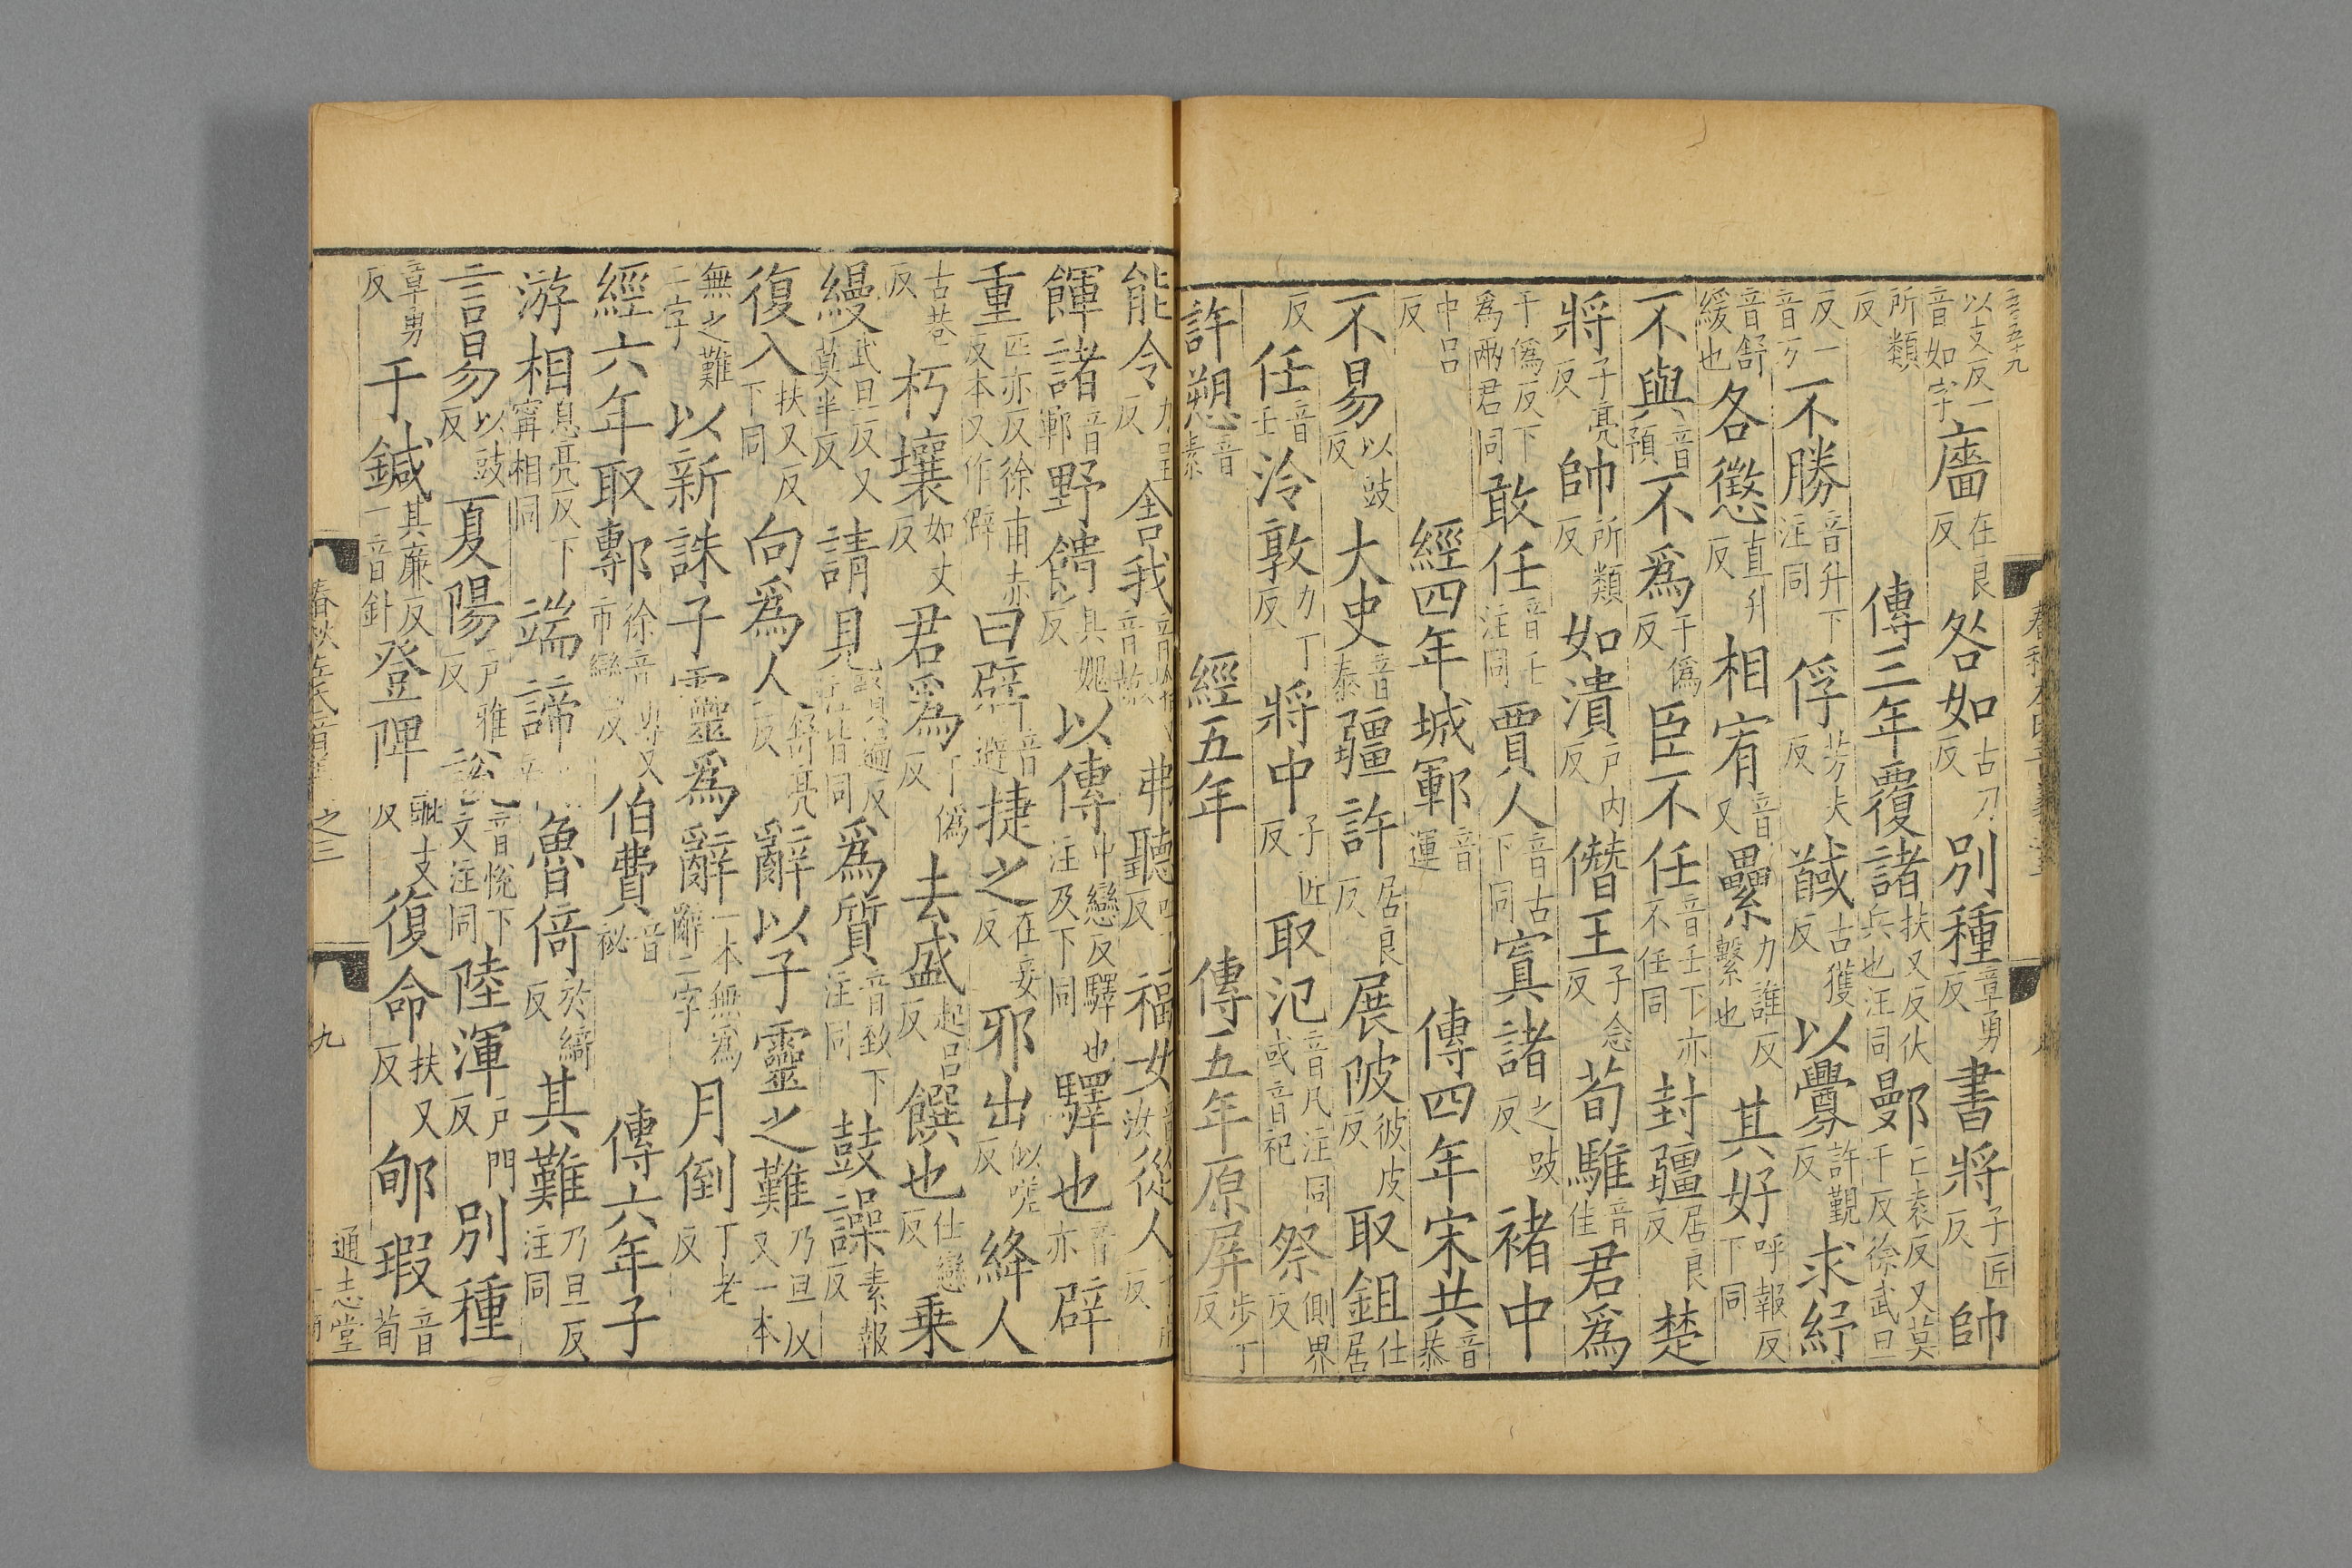 以支反一音如字廧在良反咎如古刀反別種章勇反書將子匠反帥
所類反傳三年覆諸扶又反伏兵也注同鄤亡袁反又莫干反徐武旦
反一音万不勝音升下注同俘芳夫反馘古獲反以釁許覲反求紓
音舒緩也各懲直升反相宥音又纍力誰反繫也其好呼報反下同
不與音預不爲于僞反臣不任音壬下亦不任同封疆居良反楚
將子亮反帥所類反如潰戶內反僭王子念反荀騅音隹君爲
于僞反下爲兩君同敢任音壬注同賈人音古下同寘諸之豉反褚中
中呂反經四年城鄆音運傳四年宋共音恭
不易以豉反大史音泰疆許居良反展陂彼皮反取鉏仕居
反任音壬泠敦力丁反將中子匠反取氾音凡注同或音祀祭側界反
許愬音素經五年傳五年原屏步丁反
能令力呈反舍我音捨音赦弗聽反福女音汝從人反
餫諸音鄆野饋其媿反以傳中戀反驛也注及下同驛也音亦辟
重匹亦反徐甫赤反本又作僻曰辟音避捷之在妾反邪出似嗟反絳人
古巷反朽壤如丈反君爲于僞反去盛起呂反饌也仕戀反乗
縵武旦反又莫半反請見賢遍反注皆同爲質音致下注同鼓譟素報反
復入扶又反下同向爲人舒亮反辭以子靈之難乃旦反又一本
無之難二字以新誅子靈爲辭一本無爲辭二字月倒丁老反
經六年取鄟徐音專又市臠反伯費音祕傳六年子
游相息亮反下甯相同端諦魯倚於綺反其難乃旦反注同
言易以豉反夏陽戶雅反說音悅下文注同陸渾戶門反別種
章勇反于鍼其廉反一音針登陴毗支反復命扶又反郇瑕音荀
春秋左氏音義之三 九 通志堂